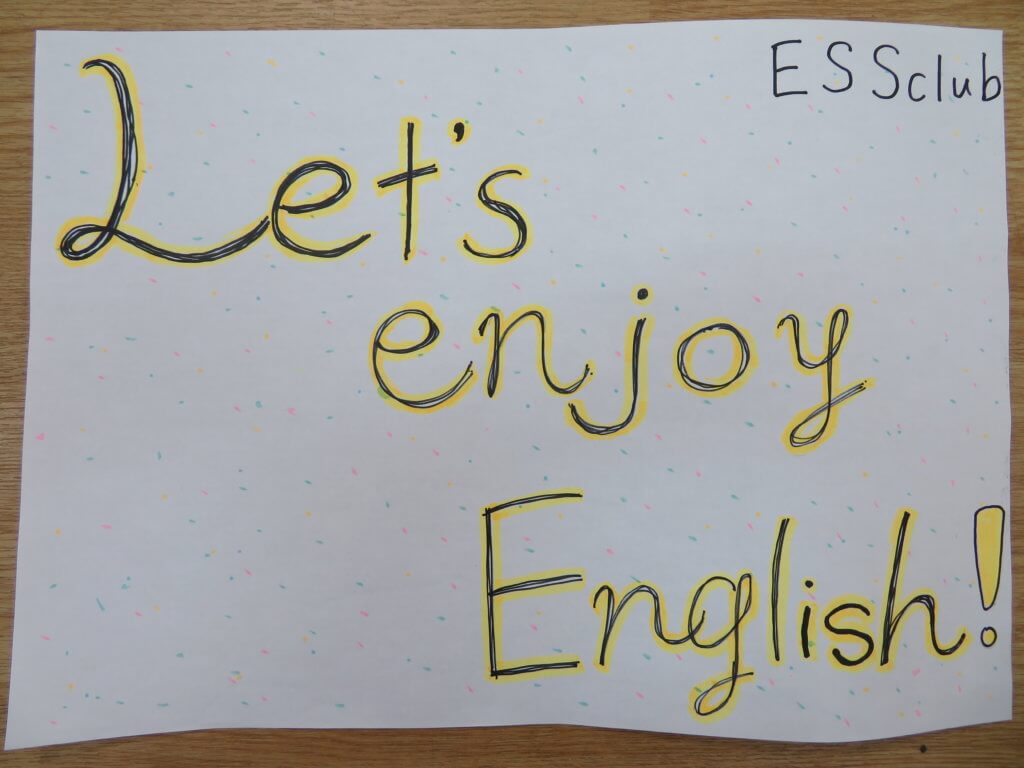 ESSclub
Let's
enjoy
English!